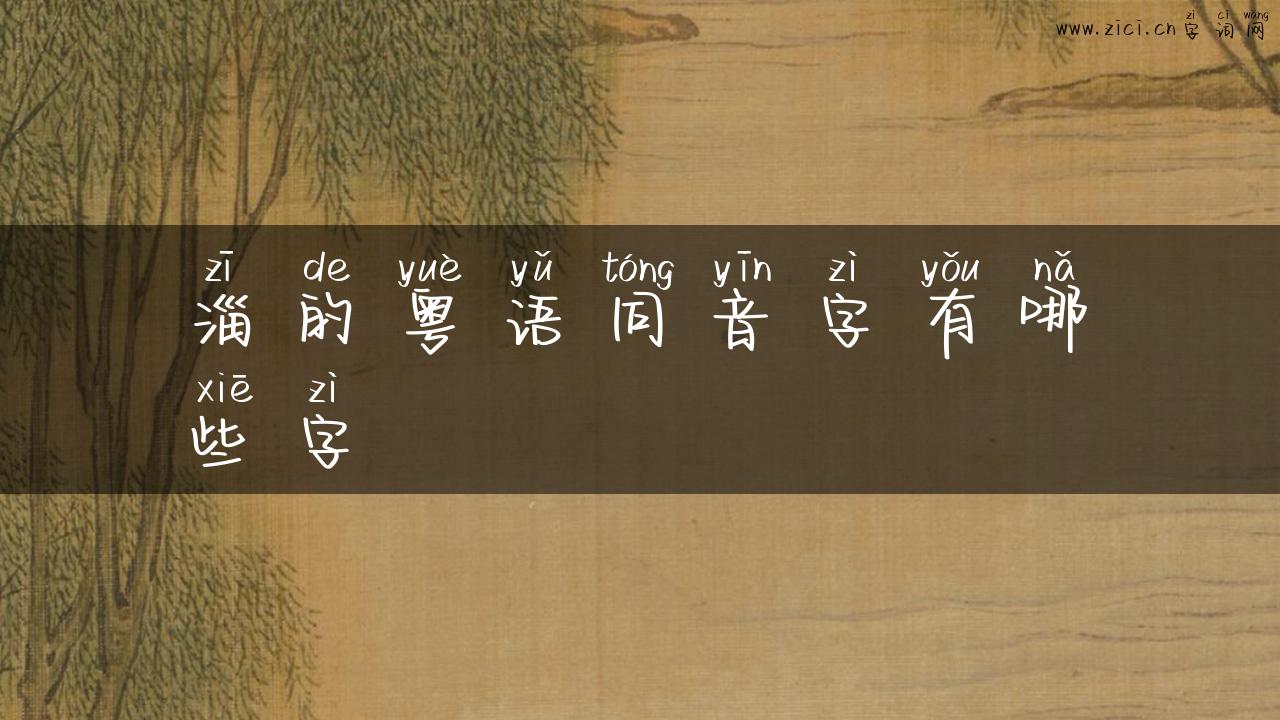 www.zici.cn字词网
zì cí wǎng
zī de yuè yǔ tóng yīn zì yǒu nǎ
淄的粤语同音字有哪
xiē zì
些字